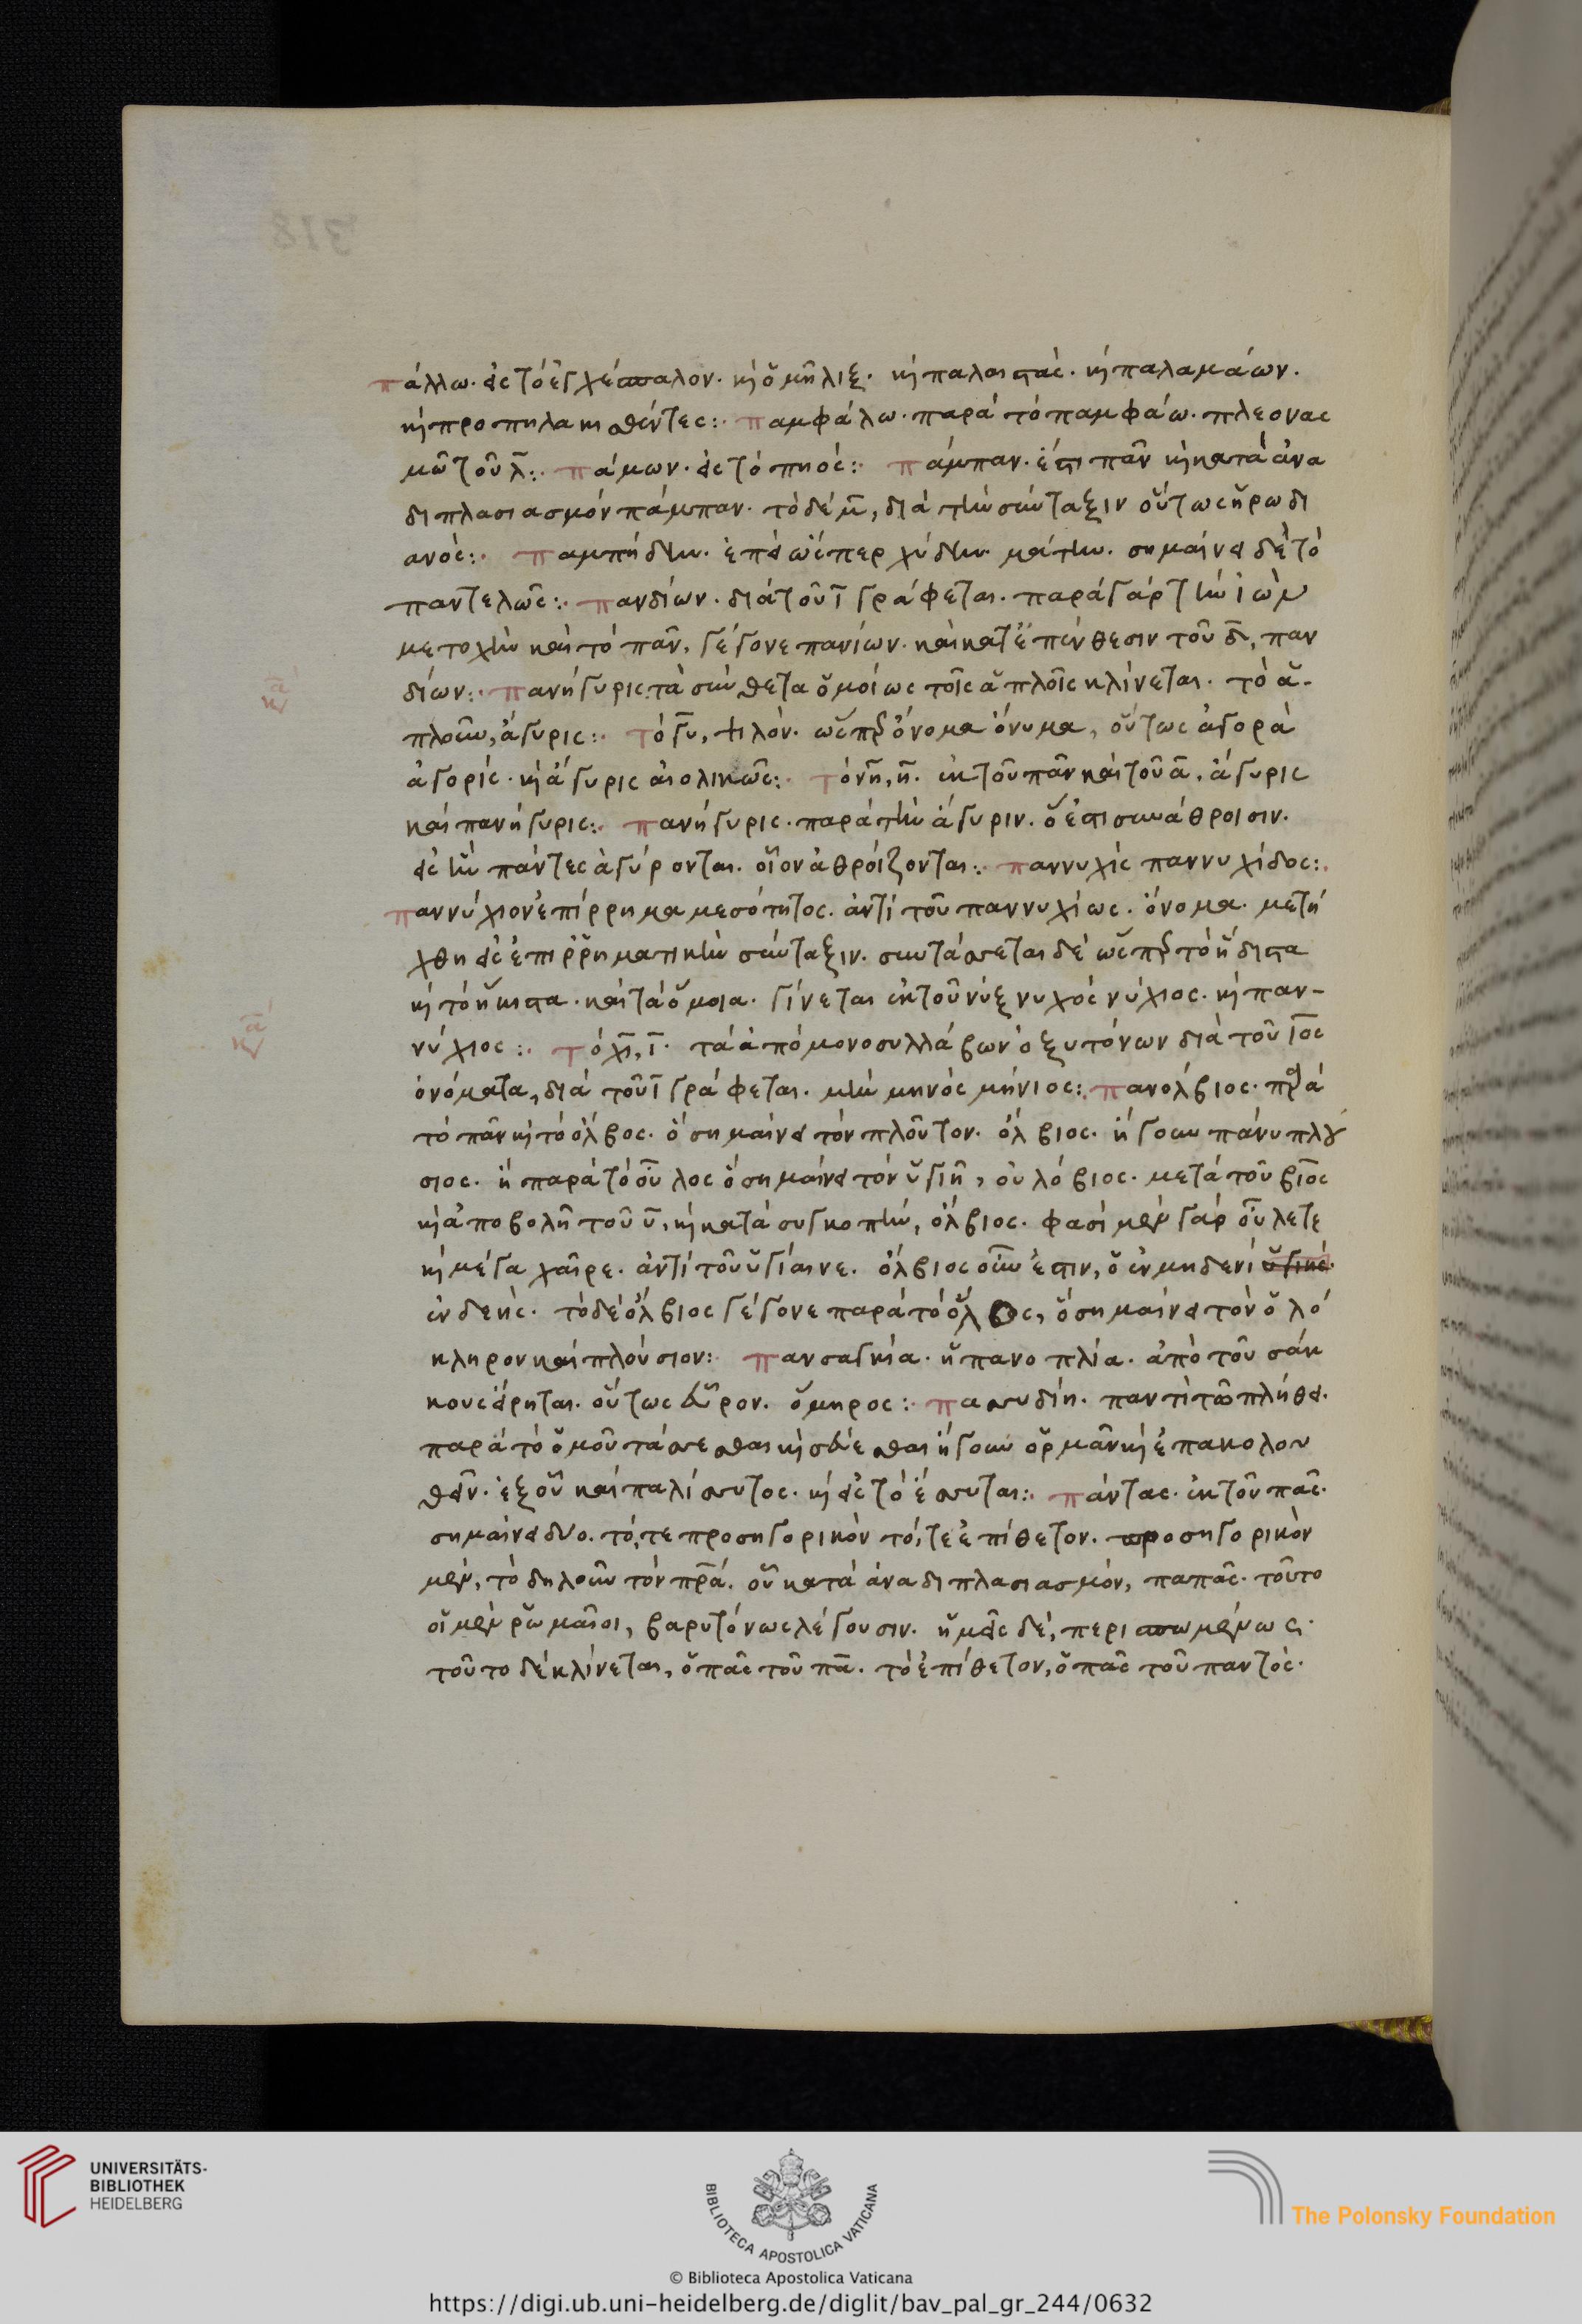 πάλλω· εἰς τὸ ἐγχέσπαλον· καὶ ὁμῆλιξ· καὶ παλαιστὰς· καὶ παλαμάων·
καὶ προπηλακισθέντες:· παμφάλω· παρὰ τὸ παμφάω· πλεονας
μῶ τοῦ λ̄:· πάμων· εἰς τὸ πηός:· πάμπαν· ἔστι πᾶν καὶ κατὰ ἀνα
διπλασιασμὸν πάμπαν· τὸ δὲ μ̄, διὰ τὴν σύνταξιν οὕτως ἡρωδι
ανός:· παμπήδην· ἐπεὶ ὥσπερ χύδην μάτην· σημαίνει δὲ τὸ
παντελῶς:· πανδίων· διὰ τοῦ ῑ γράφεται· παρὰ γὰρ τὴν ἰὼν
μετοχὴν καὶ τὸ πᾶν, γέγονε πανίων· καὶ κατ' ἐπένθεσιν τοῦ δ̄, παν
δίων:· πανήγυρις· τὰ σύνθετα ὁμοίως τοῖς ἁπλοῖς κλίνεται· τὸ ἁ-
πλοῦν, ἄγυρις:· τὸ γυ, ψιλόν· ὥσπερ ὄνομα ὄνυμα, οὕτως ἀγορὰ
ἀγορίς· καὶ ἄγυρις αἰολικῶς:· τὸ νη, η̄· ἐκ τοῦ πᾶν καὶ τοῦ ᾱ, ἄγυρις
καὶ πανήγυρις:· πανήγυρις· παρὰ τὴν ἄγυριν· ὅ ἐστι συνάθροισιν·
εἰς ἣν πάντες ἀγύρονται· οἷον ἀθροίζονται:· παννυχὶς παννυχίδος:·
παννύχιον ἐπίρρημα μεσότητος· ἀντὶ τοῦ παννυχίως· ὄνομα· μετή
χθη εἰς ἐπιρρηματικὴν σύνταξιν· συντάσσεται δὲ ὥσπερ τὸ ἥδιστα
καὶ τὸ ἥκιστα· καὶ τὰ ὅμοια· γίνεται ἐκ τοῦ νύξ νυχός νύχιος· καὶ παν-
νύχιος:· τὸ χι, ῑ· τὰ ἀπὸ μονοσυλλάβων ὀξυτόνων διὰ τοῦ ιος
ὀνόματα, διὰ τοῦ ῑ γράφεται· μὴν μηνὸς μήνιος:· πανόλβιος· παρὰ
τὸ πᾶν καὶ τὸ ὄλβος· ὃ σημαίνει τὸν πλοῦτον· ὄλβιος· ἤγουν πάνυ πλού
σιος· ἢ παρὰ τὸ οὖλος ὃ σημαίνει τὸν ὑγιῆ, οὐλόβιος· μετὰ τοῦ βίος
καὶ ἀποβολῇ τοῦ ῡ, καὶ κατὰ συγκοπὴν, ὄλβιος· φασὶ μὲν γὰρ οὖλε τε
καὶ μέγα χαῖρε· ἀντὶ τοῦ ὑγίαινε· ὄλβιος οὖν ἐστιν, ὁ ἐν μηδενὶ ὑγιής·
ἐνδεής· τὸ δὲ ὄλβιος γέγονε παρὰ τὸ ὄλβος, ὃ σημαίνει τὸν ὁλό
κληρον καὶ πλούσιον:· πανσαγκία· ἡ πανοπλία· ἀπὸ τοῦ σάκ
κους εἴρηται· οὕτως εὗρον· ὅμηρος:· πασσυδίη· παντὶ τῶ πλήθει·
παρὰ τὸ ὁμοῦ τάσσεσθαι καὶ σεύεσθαι ἤγουν ὁρμᾶν καὶ ἐπακολου
θεῖν· ἐξ οὗ καὶ παλίσσυτος· καὶ εἰς τὸ ἔσσυται:· πάντας· ἐκ τοῦ πᾶς·
σημαίνει δύο· τό, τε προσηγορικὸν τό, τε ἐπίθετον· προσηγορικὸν
μὲν, τὸ δηλοῦν τὸν πρα· οὗ κατὰ ἀναδιπλασιασμόν, παπᾶς· τοῦτο
οἱ μὲν ῥωμαῖοι, βαρυτόνως λέγουσιν· ἡμεῖς δέ, περισπωμένως·
τοῦτο δὲ κλίνεται, ὁ πᾶς τοῦ πᾶ· τὸ ἐπίθετον, ὁ πᾶς τοῦ παντός·
318
UNIVERSITÄTS-
BIBLIOTHEK
HEIDELBERG
BIBLIOTECA APOSTOLICA VATICANA
The Polonsky Foundation
© Biblioteca Apostolica Vaticana
https://digi.ub.uni-heidelberg.de/diglit/bav_pal_gr_244/0632